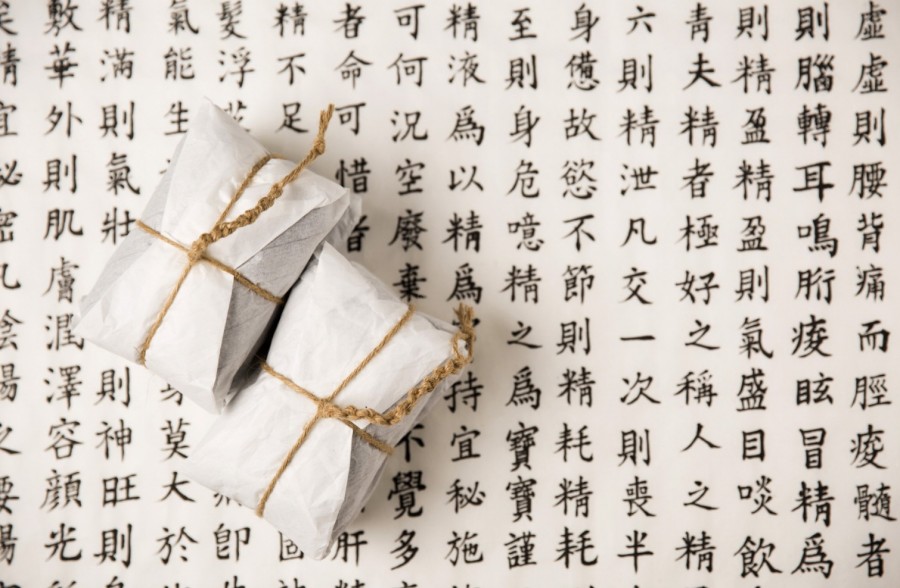 虛虛則腰背痛而脛痠髓者
則腦轉耳鳴胻痠眩冒精為
則精盈精盈則氣盛目啖飲
青夫精者極好之稱人之精
六則精泄凡交一次則喪半
身憊故慾不節則精耗精耗
至則身危噫精之為寶寶謹
精液爲以精爲持宜秘施
可何況空廢棄不覺多
者命可惜者肝
精不足
髮浮即
氣能生莫大於
精滿則氣壯則神旺則
敷華外則肌膚潤澤容顏光
精宜密陰陽之要陽